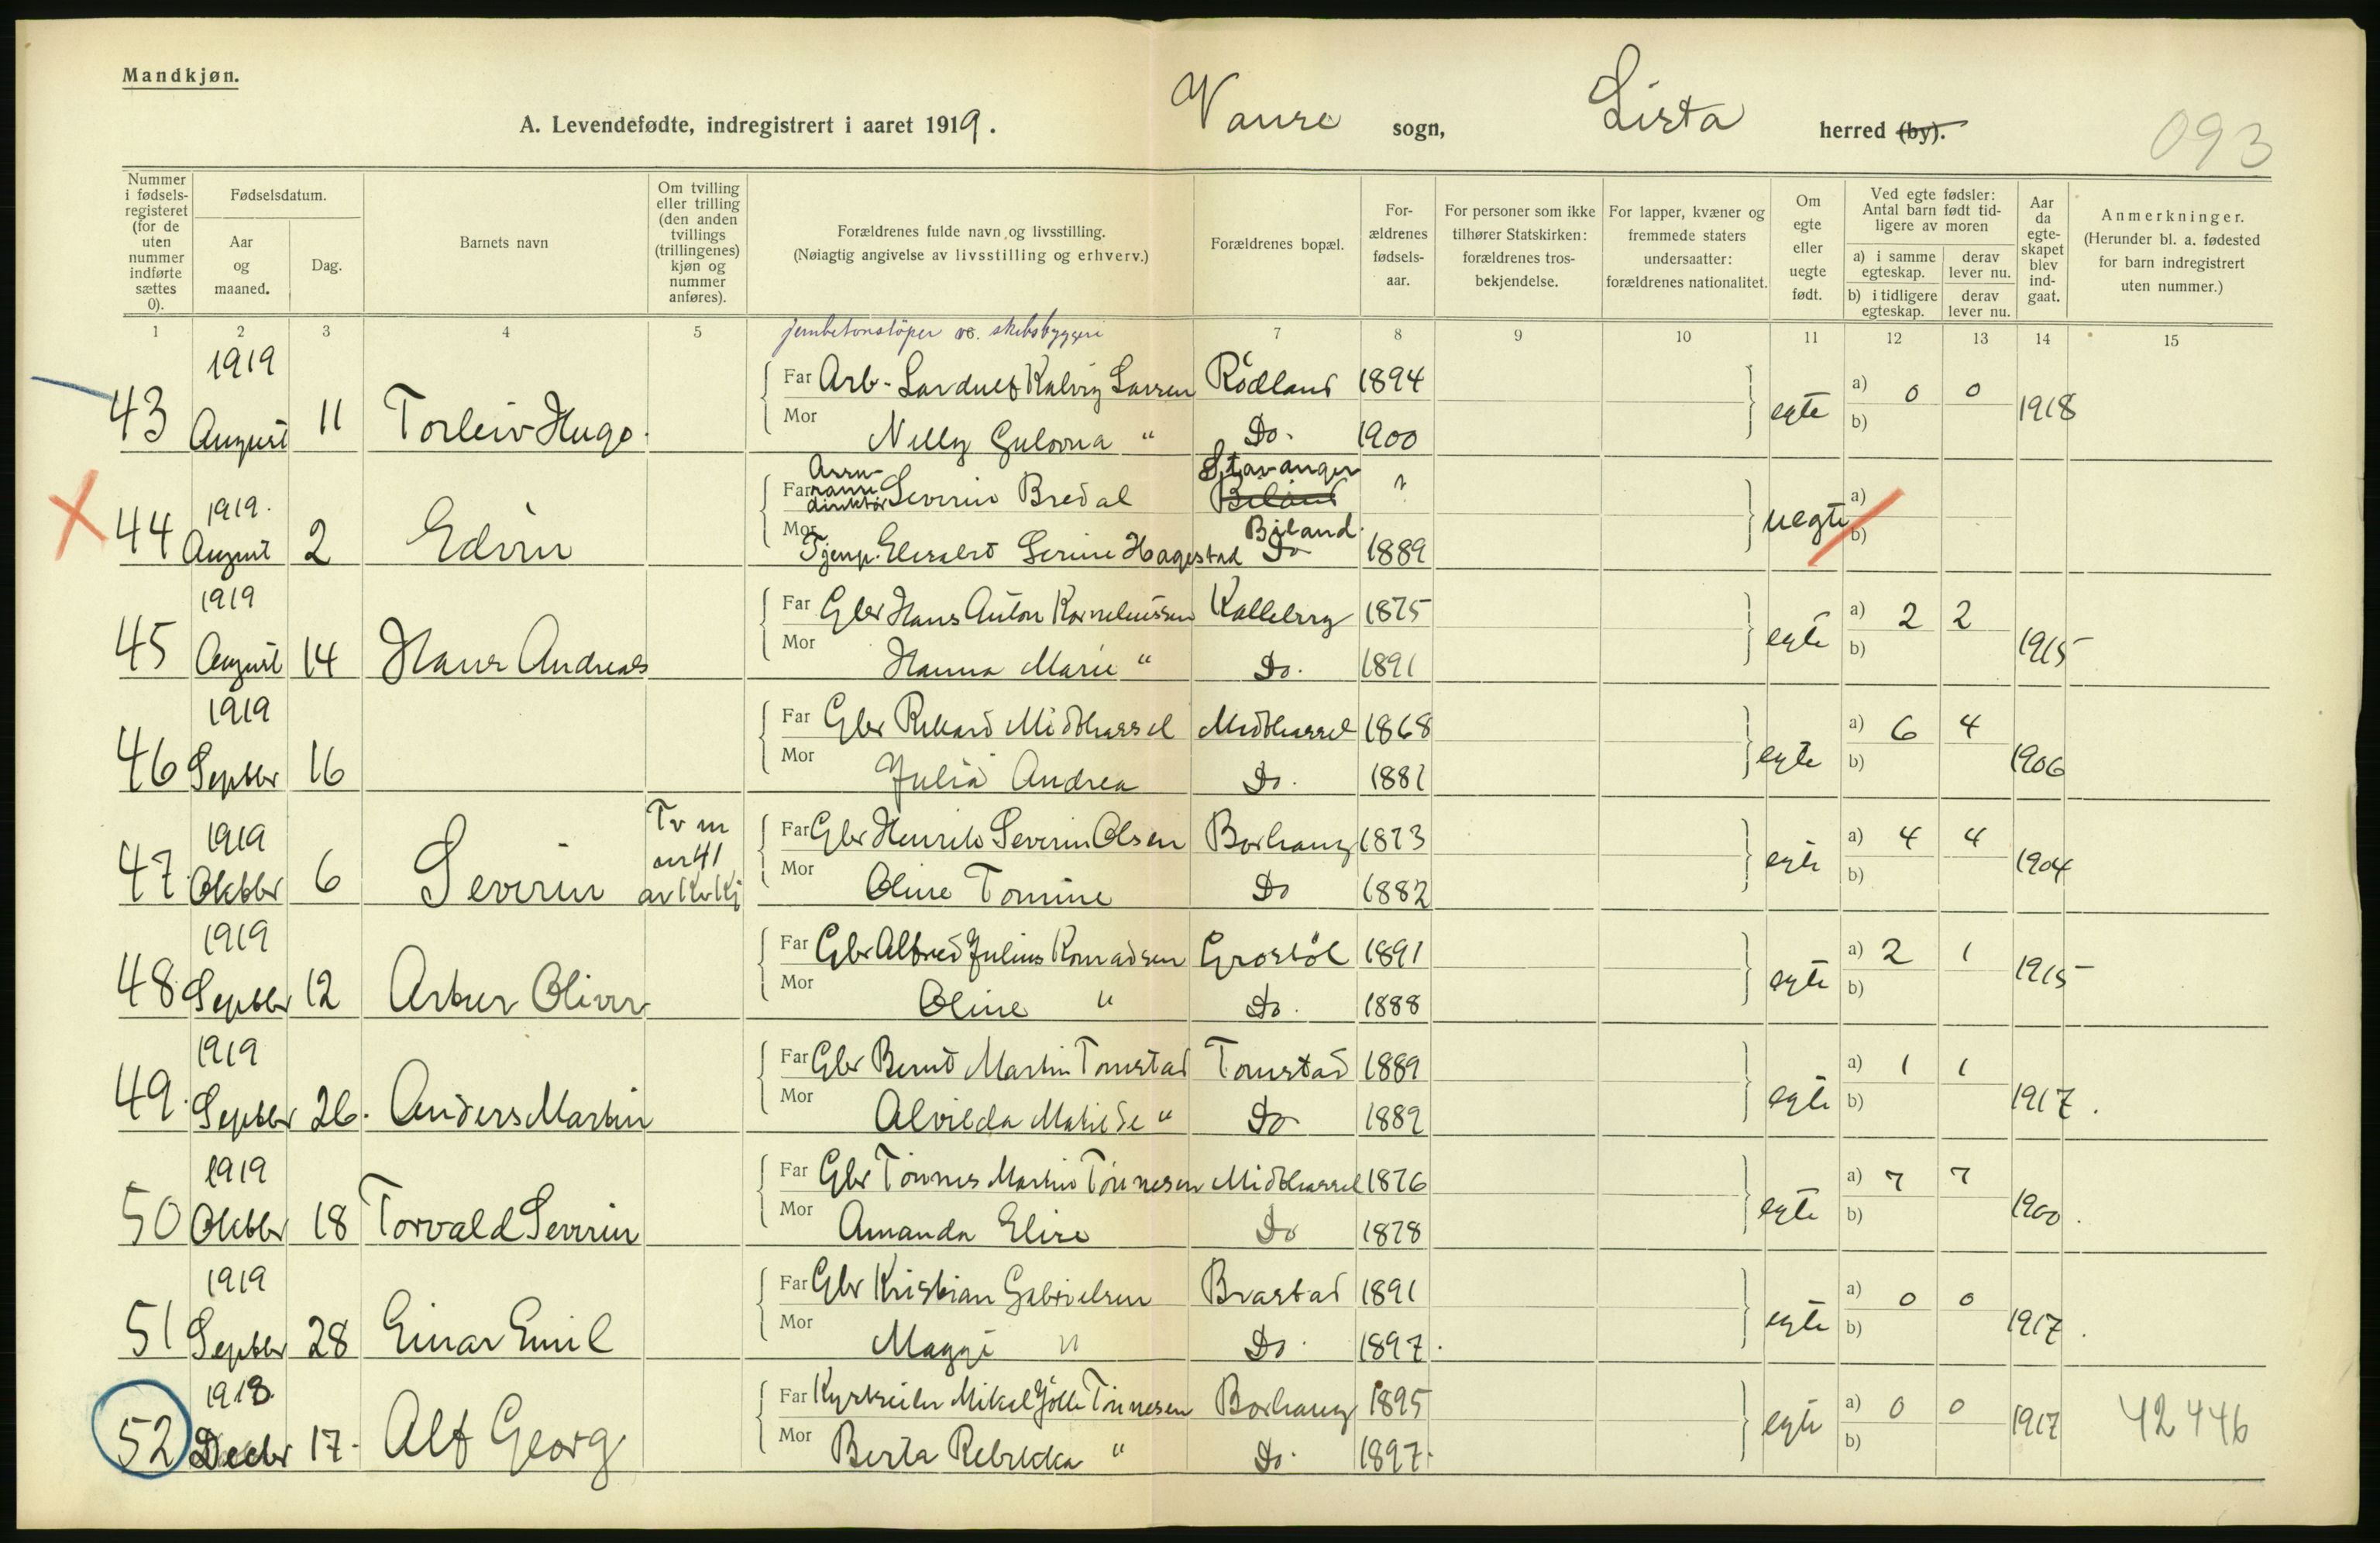 Mandkjøn.
A. Levendefødte, indregistrert i aaret 1919. Vanse sogn, Lista herred (by).
093
Nummer i fødselsregisteret (for de uten nummer indførte sættes 0).
Fødselsdatum.
Aar og maaned.
Dag.
Barnets navn
Om tvilling eller trilling (den anden tvillings (trillingenes) kjøn og nummer anføres).
Forældrenes fulde navn og livsstilling. (Nøiagtig angivelse av livsstilling og erhverv.)
Forældrenes bopæl.
Forældrenes fødselsaar.
For personer som ikke tilhører Statskirken: forældrenes trosbekjendelse.
For lapper, kvæner og fremmede staters undersaatter: forældrenes nationalitet.
Om egte eller uegte født.
Ved egte fødsler: Antal barn født tidligere av moren
a) i samme egteskap. derav lever nu.
b) i tidligere egteskap. derav lever nu.
Aar da egteskapet blev indgaat.
Anmerkninger. (Herunder bl. a. fødested for barn indregistrert uten nummer.)
1 2 3 4 5 7 8 9 10 11 12 13 14 15
jernbetonstöper v. skibsbyggeri
43 1919 August 11 Torleiv Hugo. Far Arb. Kalvig Larsen Rödland 1894 egte a) 0 0 1918
Mor Nelly " Do. 1900 b)
44 1919. August 2 Edvin Far direktör Severin Bredal Stavanger Biland ? uegte a)
Mor Tjenp. Serine Hagestad Biland. Do 1889 b)
45 1919 August 14 Hans Andreas Far Gbr Hans Anton Korneliussen Kalleberg 1875 egte a) 2 2 1915
Mor Hanna Marie " Do. 1891 b)
46 1919 Septbr 16 Far Gbr Rikard Midthassel Midthassel 1868 egte a) 6 4 1906
Mor Julia Andrea Do. 1881 b)
47 1919 Oktbr 6 Severin Tv m nr 41 av Kv Kj Far Gbr Henrik Severin Olsen Borhaug 1873 egte a) 4 4 1904
Mor Oline Tomine Do 1882 b)
48 1919 Septbr 12 Artur Oliver Far Gbr Alfred Julius Konradsen Grostöl 1891 egte a) 2 1 1915
Mor Oline " Do. 1888 b)
49. 1919 Septbr 26. Anders Martin Far Gbr Bernt Martin Tomstad Tomstad 1889 egte a) 1 1 1917.
Mor Alvilda Matilde " Do 1889 b)
50 1919 Oktbr 18 Torvald Severin Far Gbr Tönnes Martin Tönnesen Midthassel 1876 egte a) 7 7 1900.
Mor Amanda Elise Do 1878 b)
51 1919 Septbr 28 Einar Emil Far Gbr Kristian Gabrielsen Brastad 1891 egte a) 0 0 1917.
Mor Maggi " Do. 1897. b)
52 1918 Decbr 17. Alf Georg Far Mikal Tönnesen Borhaug 1895 egte a) 0 0 1917 42446
Mor Berta Rebekka " Do. 1897. b)